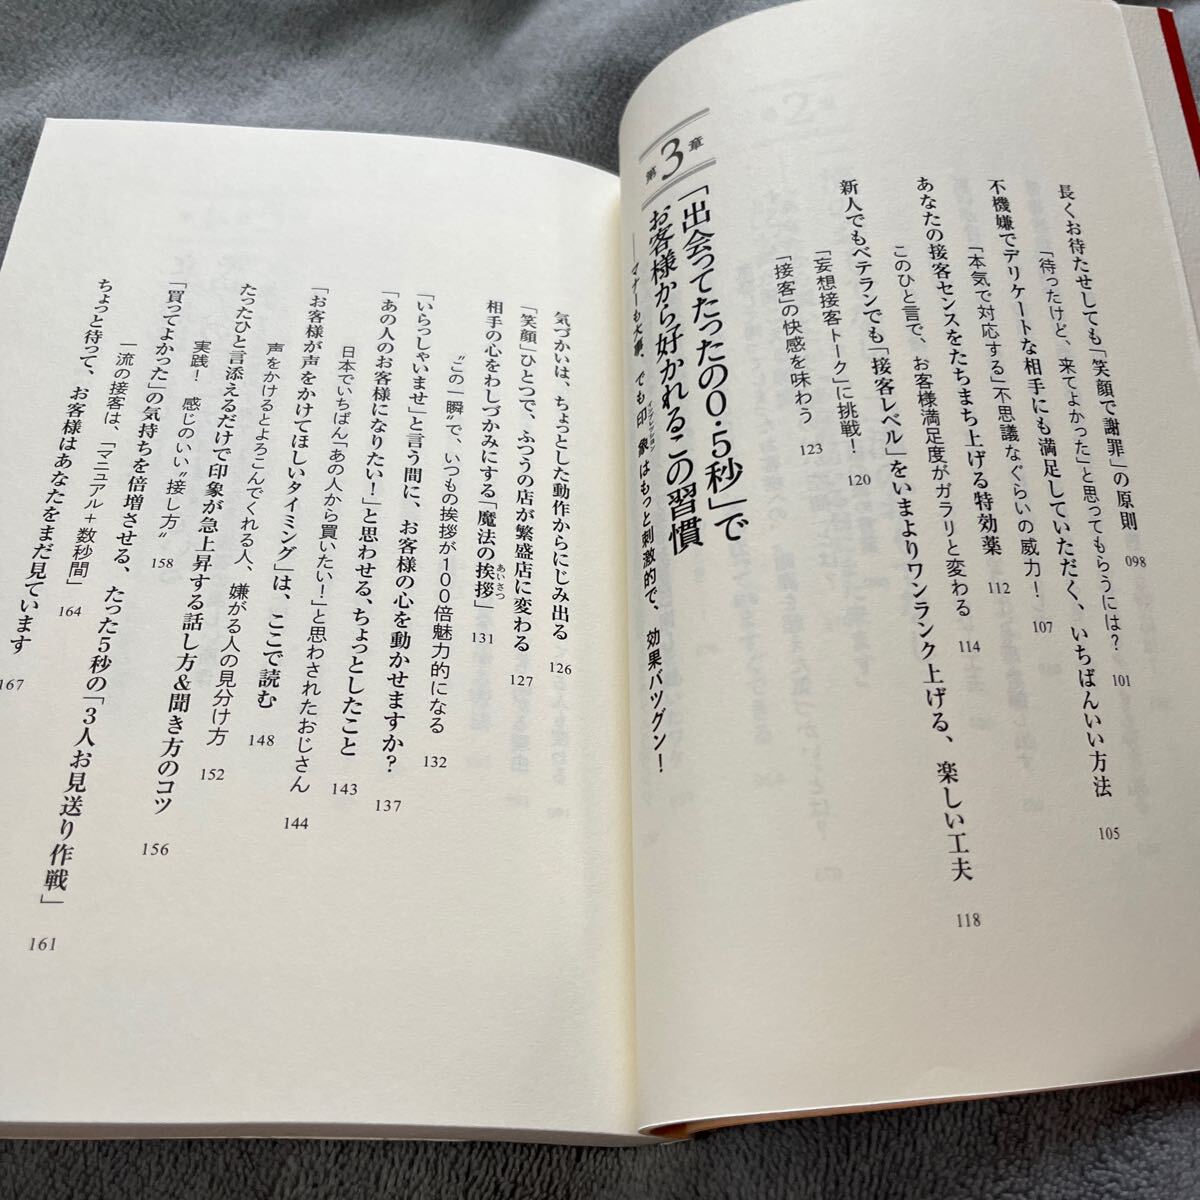 長くお待たせしても「笑顔で謝罪」の原則 098
「待ったけど、来てよかった」と思ってもらうには？ 101
不機嫌でデリケートな相手にも満足していただく、いちばんいい方法 105
「本気で対応する」不思議なぐらいの威力！ 107
あなたの接客センスをたちまち上げる特効薬 112
このひと言で、お客様満足度がガラリと変わる 114
新人でもベテランでも「接客レベル」をいまよりワンランク上げる、楽しい工夫 118
「妄想接客トーク」に挑戦！ 120
「接客」の快感を味わう 123
第3章
「出会ってたったの0.5秒」で
お客様から好かれるこの習慣
——マナーも大事、でも印象はもっと刺激的で、効果バツグン！
インプレッション
気づかいは、ちょっとした動作からにじみ出る 126
「笑顔」ひとつで、ふつうの店が繁盛店に変わる 127
相手の心をわしづかみにする「魔法の挨拶」 131
あいさつ
“この一瞬”で、いつもの挨拶が100倍魅力的になる 132
「いらっしゃいませ」と言う間に、お客様の心を動かせますか？ 137
「あの人のお客様になりたい！」と思わせる、ちょっとしたこと 143
日本でいちばん「あの人から買いたい！」と思わされたおじさん 144
「お客様が声をかけてほしいタイミング」は、ここで読む 148
声をかけるとよろこんでくれる人、嫌がる人の見分け方 152
たったひと言添えるだけで印象が急上昇する話し方＆聞き方のコツ 156
実践！ 感じのいい“接し方” 158
「買ってよかった」の気持ちを倍増させる、たった5秒の「3人お見送り作戦」 161
一流の接客は、「マニュアル＋数秒間」 164
ちょっと待って、お客様はあなたをまだ見ています 167